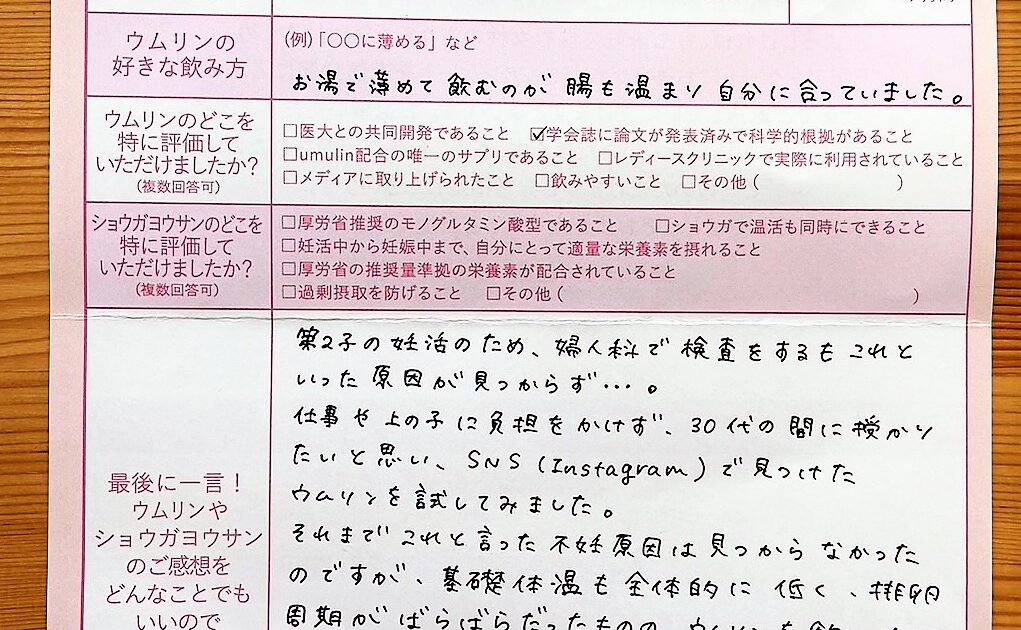 ウムリンの
好きな飲み方
(例)「〇〇に薄める」など
お湯で薄めて飲むのが腸も温まり自分に合っていました。
ウムリンのどこを
特に評価して
いただけましたか?
(複数回答可)
□医大との共同開発であること ☑学会誌に論文が発表済みで科学的根拠があること
□umulin配合の唯一のサプリであること □レディースクリニックで実際に利用されていること
□メディアに取り上げられたこと □飲みやすいこと □その他( )
ショウガヨウサンのどこを
特に評価して
いただけましたか?
(複数回答可)
□厚労省推奨のモノグルタミン酸型であること □ショウガで温活も同時にできること
□妊活中から妊娠中まで、自分にとって適量な栄養素を摂れること
□厚労省の推奨量準拠の栄養素が配合されていること
□過剰摂取を防げること □その他( )
最後に一言!
ウムリンや
ショウガヨウサン
のご感想を
どんなことでも
いいので
第2子の妊活のため、婦人科で検査をするもこれと
いった原因が見つからず…。
仕事や上の子に負担をかけず、30代の間に授かり
たいと思い、SNS(Instagram)で見つけた
ウムリンを試してみました。
それまでこれと言った不妊原因は見つからなかった
のですが、基礎体温も全体的に低く、排卵
周期がばらばらだったものの、ウムリンを飲